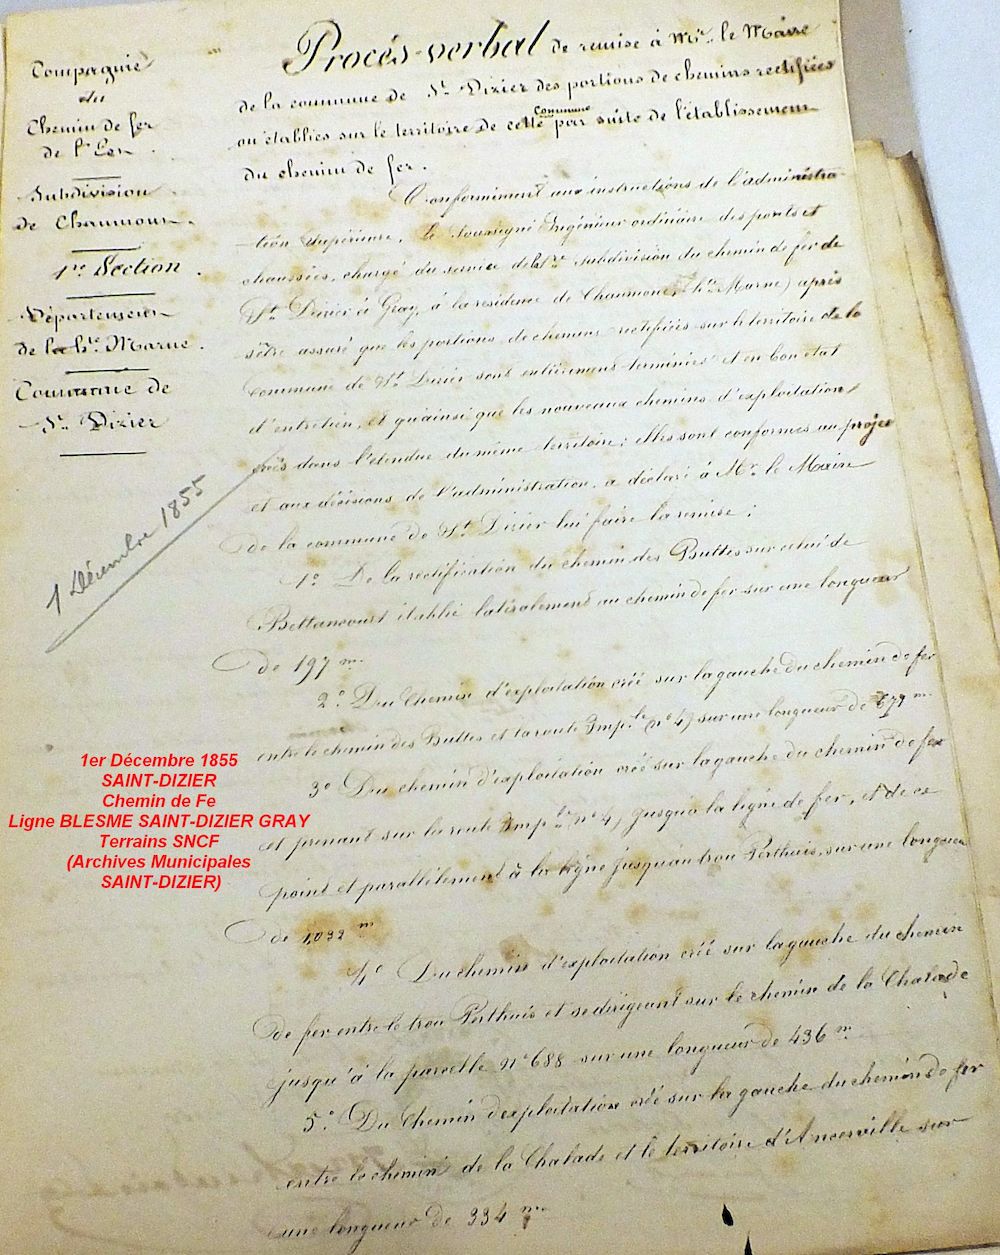 Compagnie
du
Chemin de fer
de l'Est.
Subdivision
de Chaumont.
1re Section.
Département
de la hte Marne.
Commune de
St. Dizier
1 Décembre 1855
Procès-verbal de remise à Mr. le Maire
de la commune de St. Dizier des portions de chemins rectifiées
ou établies sur le territoire de cette commune par suite de l'établissement
du chemin de fer.
Conformément aux instructions de l'administra-
tion supérieure, le soussigné Ingénieur ordinaire des ponts et
chaussées, chargé du service de la 1re subdivision du chemin de fer de
St. Dizier à Gray, à la résidence de Chaumont, (hte Marne) après
s'être assuré que les portions de chemins rectifiées sur le territoire de la
commune de St. Dizier sont entièrement terminées et en bon état
d'entretien, et qu'ainsi que les nouveaux chemins d'exploitation
créés dans l'étendue du même territoire; elles sont conformes au projet
et aux décisions de l'administration, a déclaré à Mr. le Maire
de la commune de St. Dizier lui faire la remise;
1o. De la rectification du chemin des Buttes sur celui de
Bettancourt établie latéralement au chemin de fer sur une longueur
de 197 m.
2o. Du Chemin d'exploitation créé sur la gauche du chemin de fer
entre le chemin des Buttes et la route Imple (no 4) sur une longueur de 679 m.
3o Du chemin d'exploitation créé sur la gauche du chemin de fer
et prenant sur la route Imple (no 4) jusqu'à la ligne de fer, et de ce
point et parallèlement à la ligne jusqu'au trou Perthuis, sur une longueur
de 1,032 m
4o Du chemin d'exploitation créé sur la gauche du chemin
de fer entre le trou Perthuis et se dirigeant sur le chemin de la Chalade
jusqu'à la parcelle no 688 sur une longueur de 436 m.
5o. Du Chemin d'exploitation créé sur la gauche du chemin de fer
entre le chemin de la Chalade et le territoire d'Ancerville sur
une longueur de 334 m.
1er Décembre 1855
SAINT-DIZIER
Chemin de Fe
Ligne BLESME SAINT-DIZIER GRAY
Terrains SNCF
(Archives Municipales
SAINT-DIZIER)